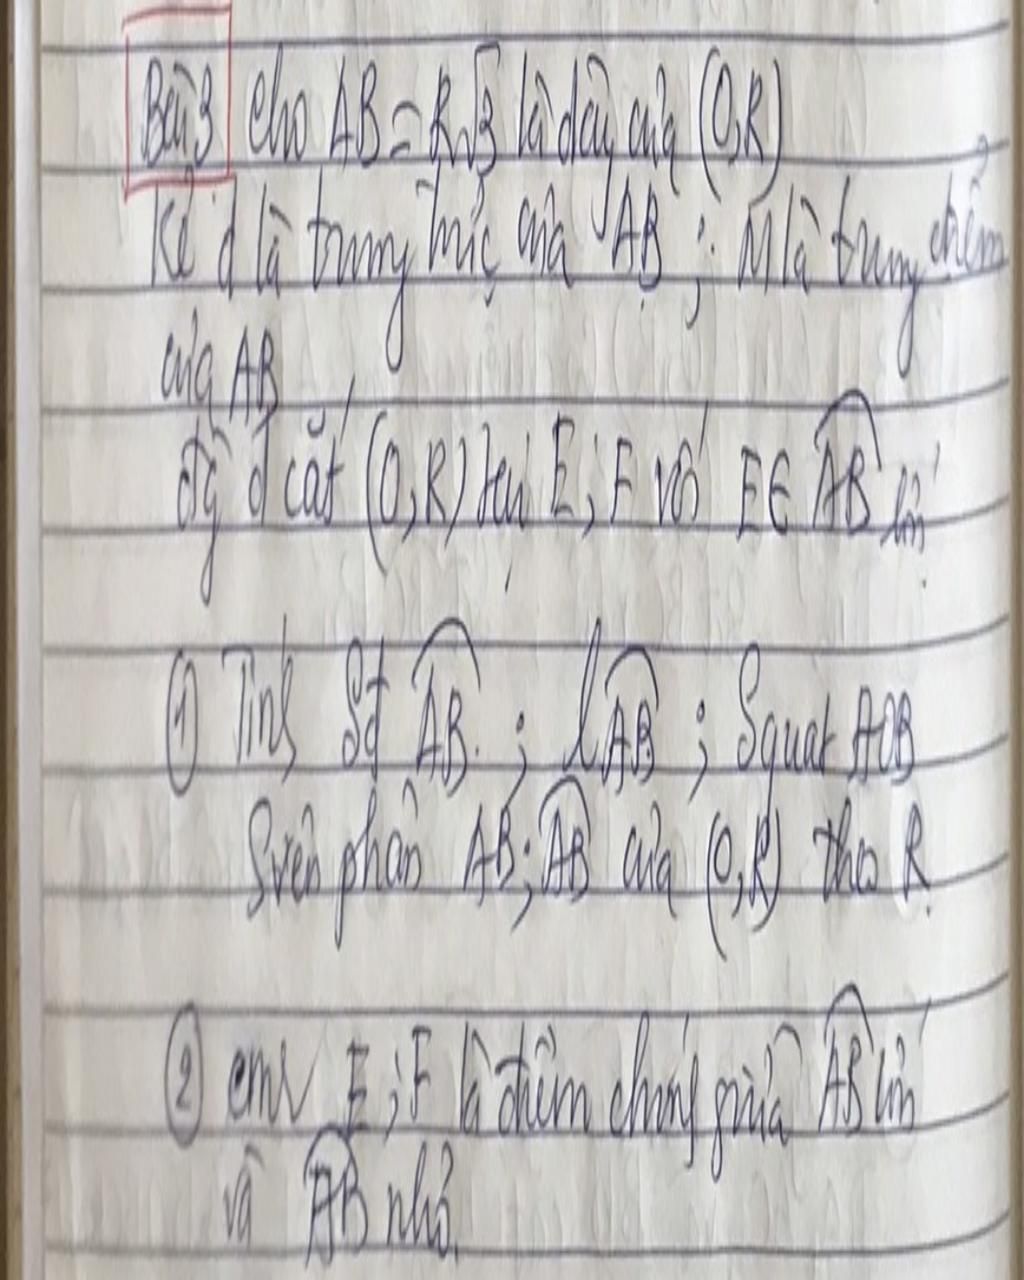 Bài 3 Cho AB = R√3 là dây của (O,R)
Kẻ d là trung trực của AB ; M là trung điểm
của AB
đg d cắt (O,R) tại E ; F với E ∈ AB lớn
① Tính Sđ AB ; l AB ; S quạt AOB
S viên phân AB ; AB của (O,R) theo R.
② cmr E ; F là điểm chính giữa AB lớn
và AB nhỏ.